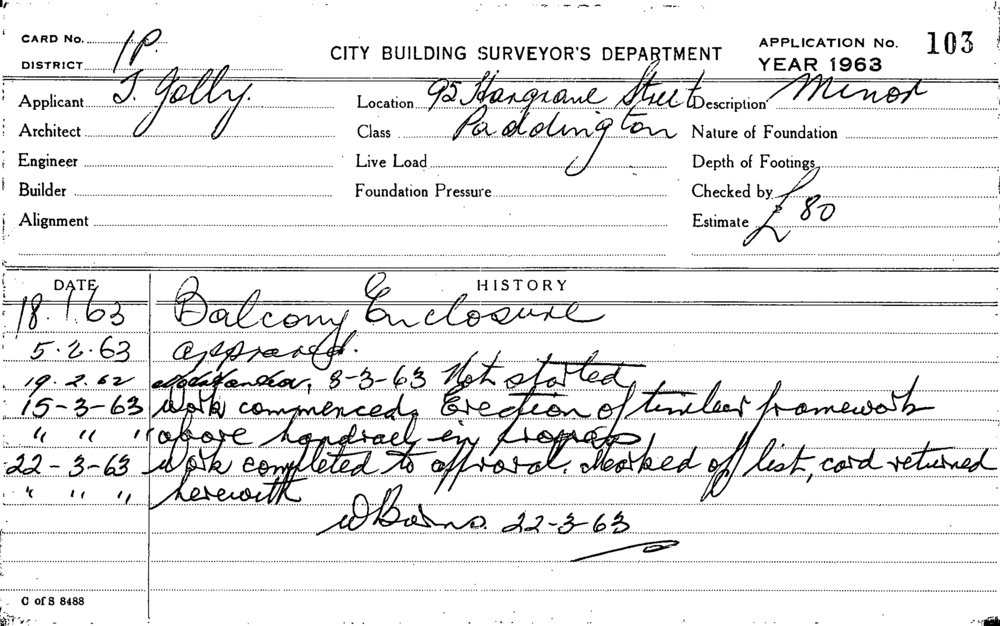 CARD No. 1P.
DISTRICT
CITY BUILDING SURVEYOR'S DEPARTMENT
APPLICATION No. 103
YEAR 1963
Applicant Jolly.
Location 95 Hargrave Street
Description Minor
Architect
Class Paddington
Nature of Foundation
Engineer
Live Load
Depth of Footings
Builder
Foundation Pressure
Checked by
Alignment
Estimate £80
DATE HISTORY
18.1.63 Balcony Enclosure
5.2.63 approved.
19.2.62 8-3-63 Not started
15-3-63 Work commenced, Erection of timber framework
" " " above handrail in progress
22-3-63 Work completed to approval. Marked of list, card returned
" " " herewith
22-3-63
C of S 8488